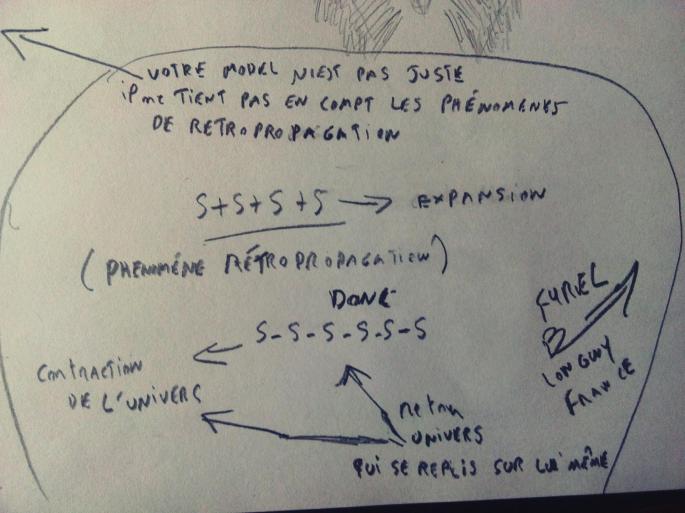 VOTRE MODEL N'EST PAS JUSTE
TIENT PAS EN COMPT LES PHÉNOMENES
DE RETROPROPAGATION
S+S+S+S → EXPANSION
(PHENOMÉNE RÉTROPROPAGATION)
DONC
S-S-S-S-S-S
CONTRACTION
DE L'UNIVERS
UNIVERS
QUI SE REPLIS SUR LUI MÊME
LONGWY
FRANCE